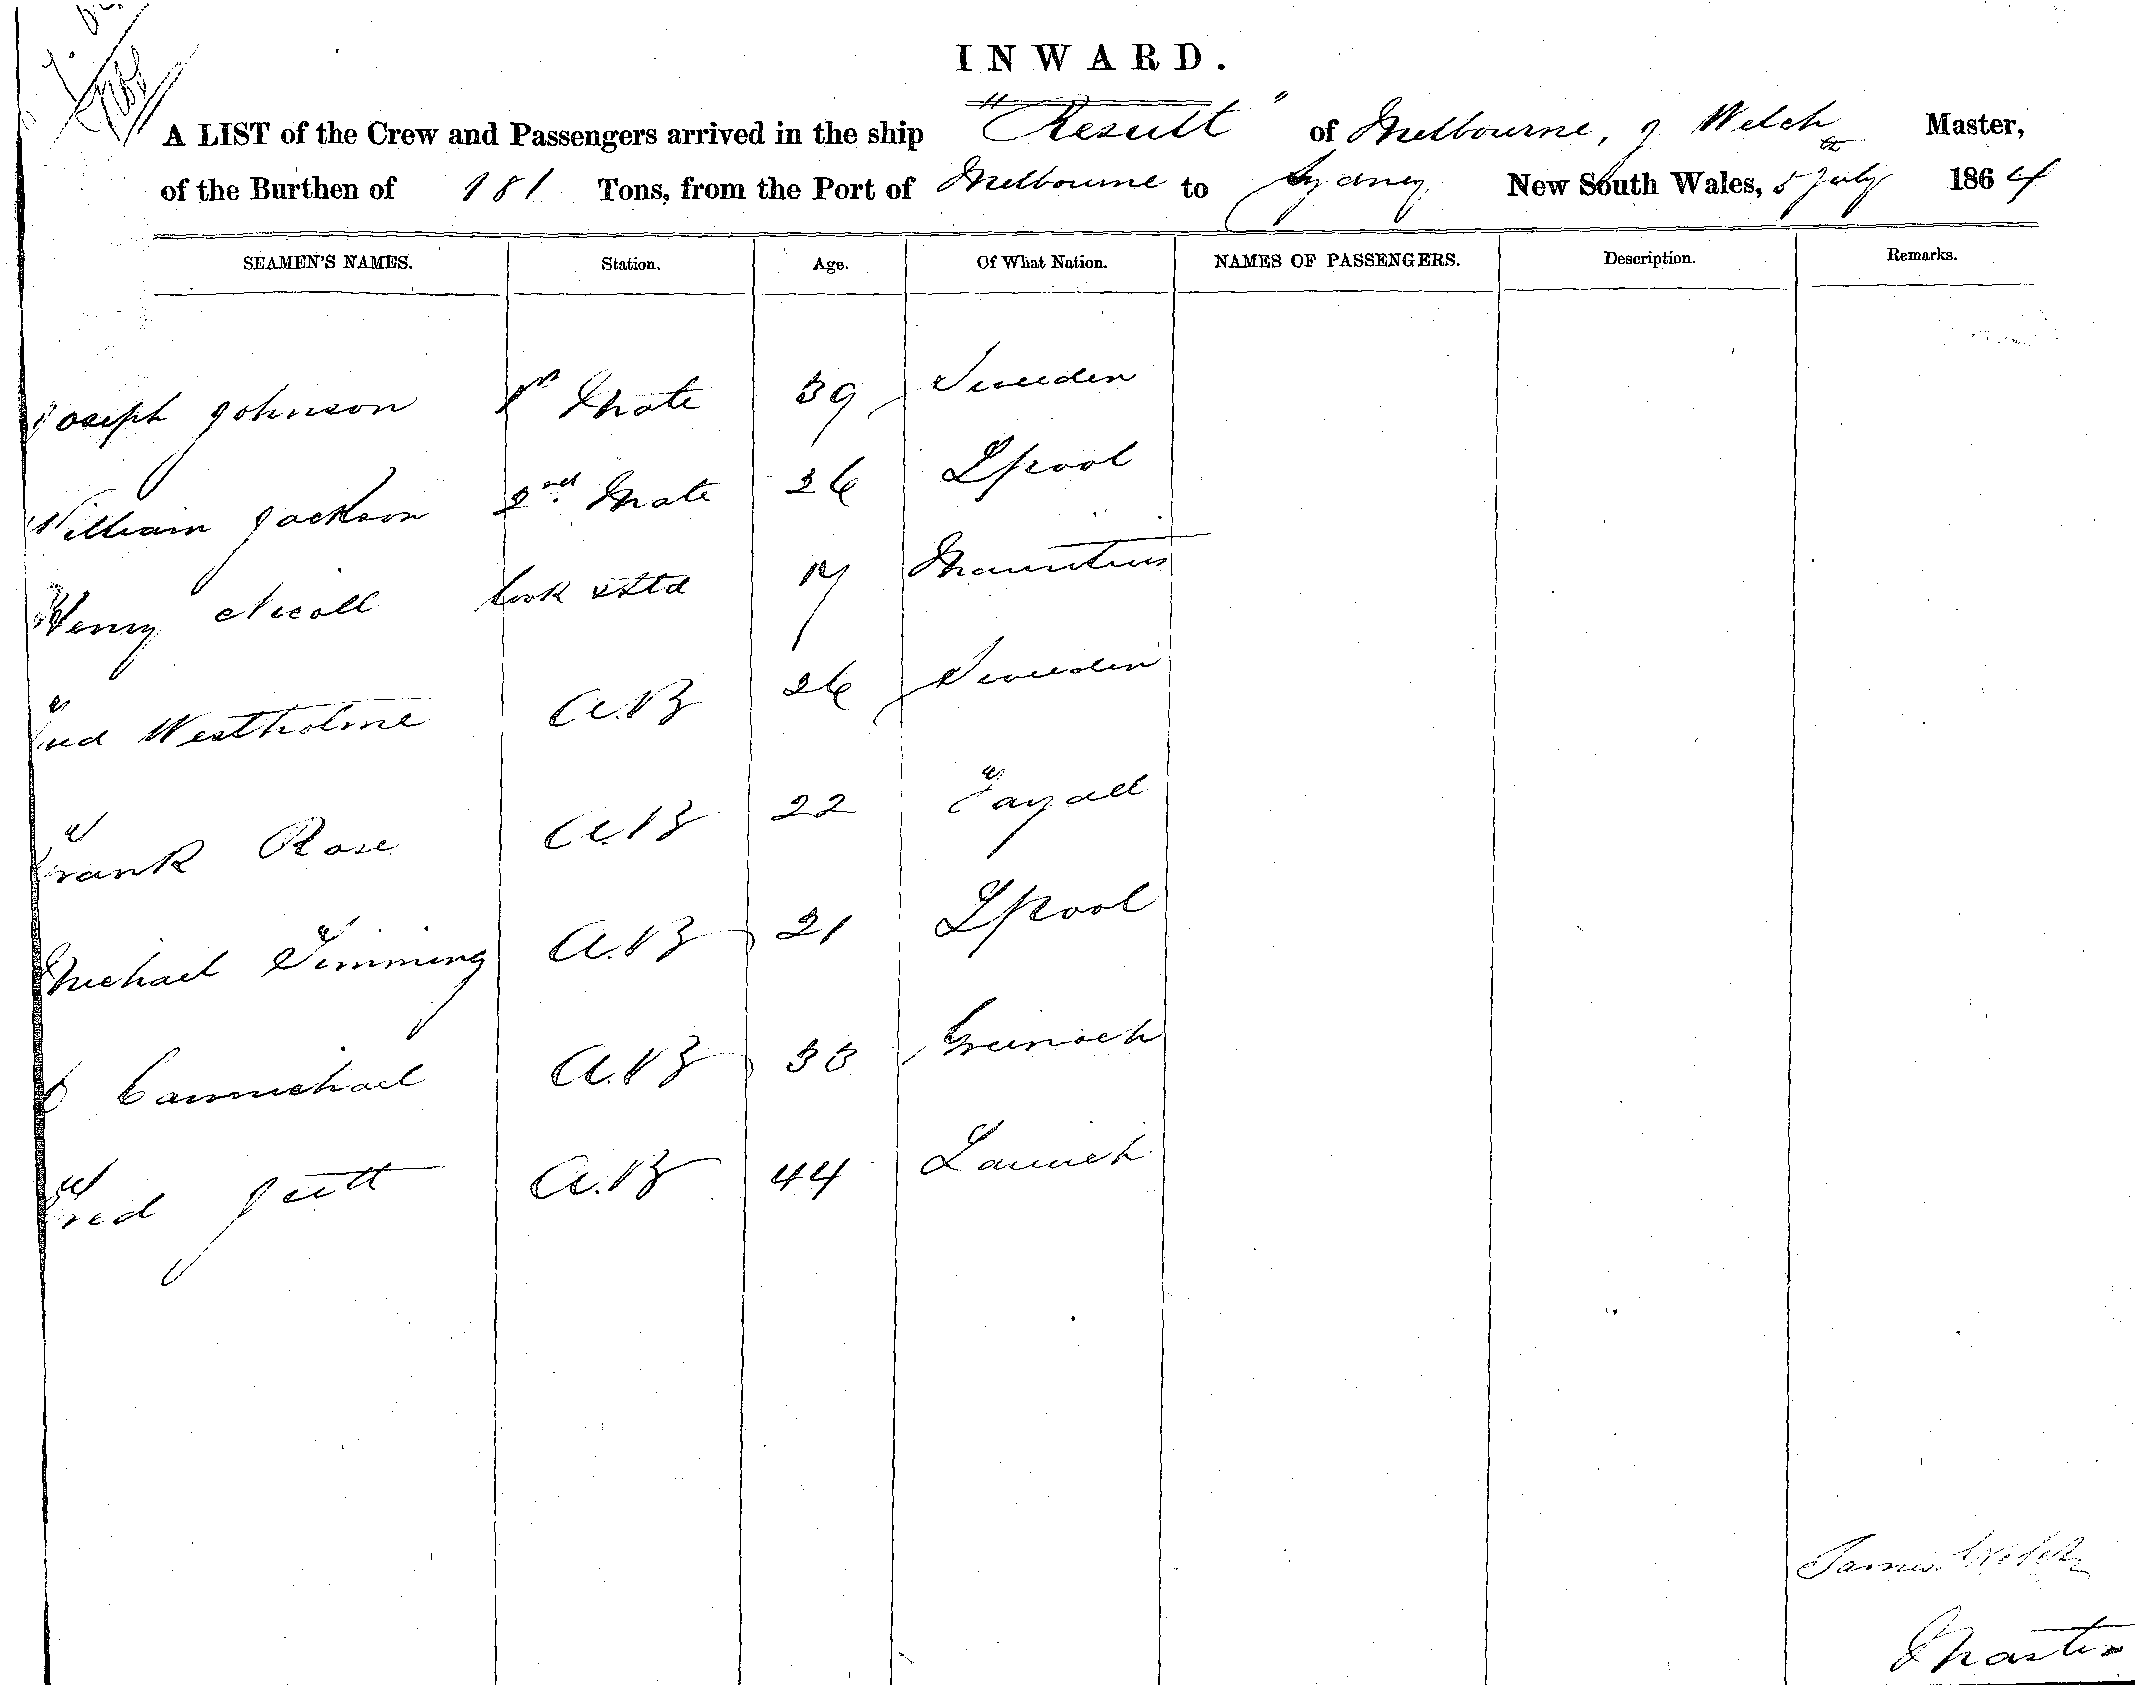 INWARD.
A LIST of the Crew and Passengers arrived in the ship "Result" of Melbourne, J Welch Master,
of the Burthen of 181 Tons, from the Port of Melbourne to Sydney New South Wales, 5th July 1864
SEAMEN'S NAMES. Station. Age. Of What Nation. NAMES OF PASSENGERS. Description. Remarks.
Joseph Johnson 1st Mate 39 Sweeden
William Jackson 2nd Mate 26 Lpool
Henry Nicoll Cook & Std 19 Mauritius
Fred Westholme A.B 26 Sweeden
Frank Rose A.B 22 Fayall
Michael Timming A.B 21 Lpool
C Carmichael A.B 33 Greenock
Fred Jutt A.B 44
James Welch
Master